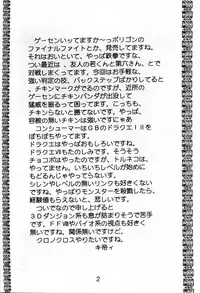 ゲーセンいってますか~ッポリゴン
のファイナルファイトとか、発売してますね。
それはおいといて、やっぱ鉄拳ですね。
つい最近は、友人の若くんと第六さん、とで
対戦しまくってます。今回はお手軽な、
強い判定の技、バックステップばかりしてると
、チキンマークがでますが、近所の
ゲーセンにチキンパンダが出没して
猛威を振るって困ってます。こっちも、
チキンじゃないと勝てないです。やっぱ、
容赦の無いチキンは強いですなぁ
コンシューマーはGBのドラクエⅠⅡを
ぽちぽちやってます。
ドラクエはやっぱおもしろいですな。
ドラクエⅦもたのしみです。そうそう
チョコボとか、トルネコは
やってません。いちいちレベルが始めに
もどるんじゃやってらんない。
シレンやレベルの無いリンクも好きくない
ですね。やっぱりモンスターを殺戮したら、
経験値もらえないと、悲しいです。
ついでなので申し上げると
3Dダンジョン系も息が詰まりそうで苦手
です。FFⅦやバイオ系の視点も好きく
無いですね。関係無いですけど。
クロノクロスやりたいですね。
キ帝ィ
2